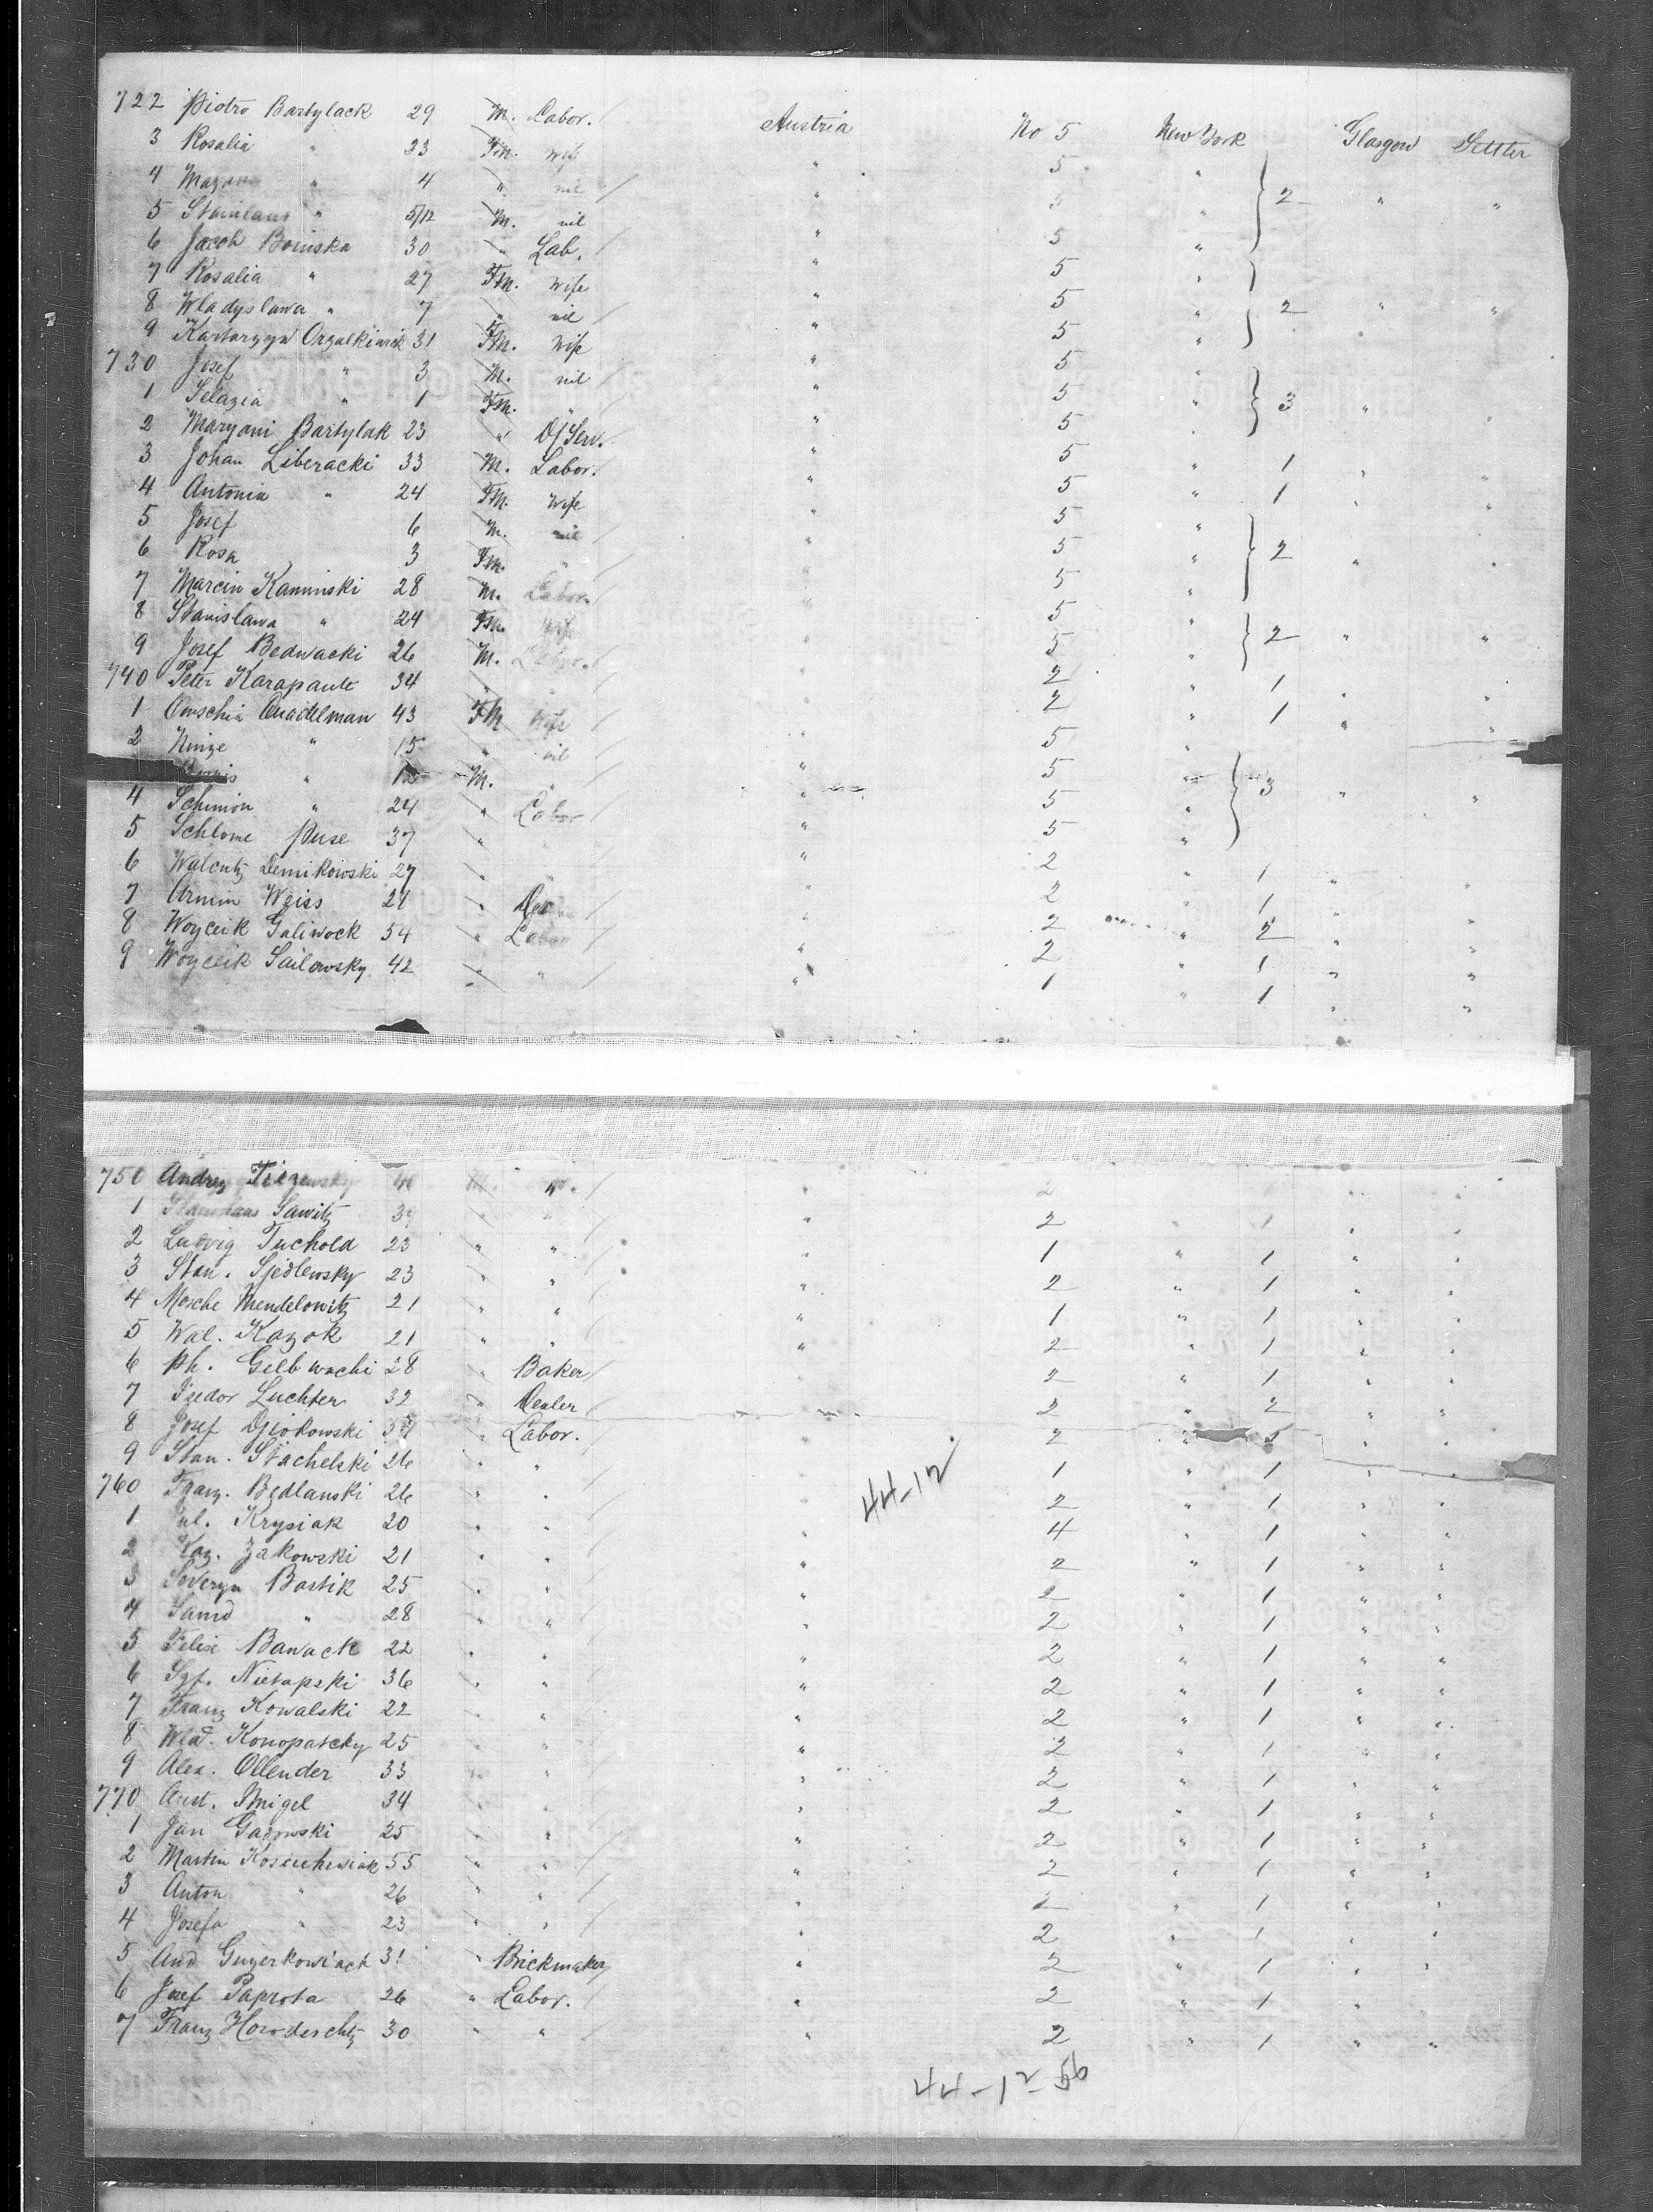 722 Piotro Bartylack 29 M. Labor. Austria No 5 New York Glasgow Settler
3 Rosalia " 23 Fm. wife " 5 "
4 " 4 " nil " 5 " } 2 " "
5 Stanilaus " 5/12 M. nil " 5 "
6 Jacob Boinska 30 " Lab. " 5 "
7 Rosalia " 27 Fm. wife " 5 " } 2 " "
8 Wladyslawa " 7 " nil " 5 "
9 31 Fm. wife " 5 "
730 Josef " 3 M. nil " 5 " } 3 "
1 " 1 Fm. " " 5
2 Maryani Bartylak 23 " D/Serv. " 5 " 1 " "
3 Johan Liberacki 33 M. Labor. " 5 " 1 " "
4 Antonia " 24 Fm. wife " 5 "
5 Josef 6 M. nil " 5 " } 2 " "
6 Rosa 3 Fm. " " 5 "
7 Marcin Kaminski 28 M. Labor. " 5 "
8 Stanislawa " 24 Fm. wife " 5 " } 2 " "
9 Josef Bedwacki 26 M. Labor. " 2 " 1 " "
740 Peter Karapaute 34 " " " 2 " 1 " "
1 43 Fm wife " 5 "
2 " 15 " nil " 5 " } 3 " "
" 12 M. " " 5 "
4 Schmion " 24 " Labor " 5 "
5 Schlome Puse 37 " " " 2 " 1 " "
6 Demikowski 27 " " " 2 " 1 " "
7 Armin Weiss 24 " " 2 " 2 " "
8 Woyceik Galiwock 34 " Labor " 2 " 1 " "
9 Woyceik Sailowsky 42 " " " 1 " 1 " "
750 Andrey M. " " 2 " "
1 Sawitz " " " 2 " 1 " "
2 Ludvig Tuchold 23 " " " 1 " 1 " "
3 Stan. Sjedlewsky 23 " " " 2 " 1 " "
4 Mosche Mendelowitz 21 " " " 1 " 1 " "
5 Wal. Kazok 21 " " " 2 " 1 " "
6 Ph. Gelbwachi 28 " Baker " 2 " 1 " "
7 Isedor Luchter 32 " Dealer " 2 " 2 " "
8 Josef Djiokowski " Labor. " 2 " " "
9 Stan. Stachelski 26 " " 1 " 1 " "
44-12
760 Franz. Bedlanski 26 " " " 2 " 1 " "
1 Jul. Krysiak 20 " " " 4 " 1 " "
2 Kaz. Zakowski 21 " " " 2 " 1 " "
3 Soveryn Bastik 25 " " " 2 " 1 " "
4 " 28 " " " 2 " 1 " "
5 Felise Banack 22 " " " 2 " 1 " "
6 Szf. Nietapski 36 " " " 2 " 1 " "
7 Franz Kowalski 22 " " " 2 " 1 " "
8 Wlad. Konopatcky 25 " " " 2 " 1 " "
9 Alex. Ollender 33 " " " 2 " 1 " "
770 Aust. 34 " " " 2 " 1 " "
1 Jan Gadowski 25 " " " 2 " 1 " "
2 Martin 55 " " " 2 " 1 " "
3 Anton " 26 " " " 2 " 1 " "
4 Josefa " 23 " " " 2 " 1 " "
5 And 31 " Brickmaker " 2 " 1 " "
6 Josef Paprota 26 " Labor. " 2 " 1 "
7 Franz 30 " " " 2 " 1 " "
44-12-56